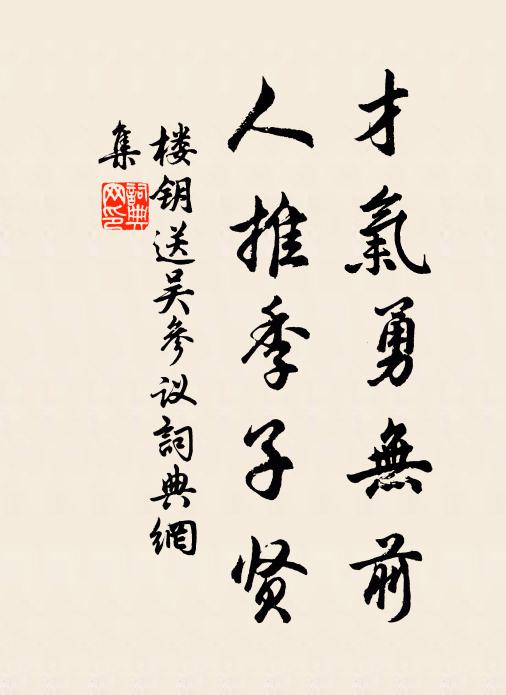 才氣勇無前
人推季子贤
楼钥送吴参议詞典網
集
詞典
网印